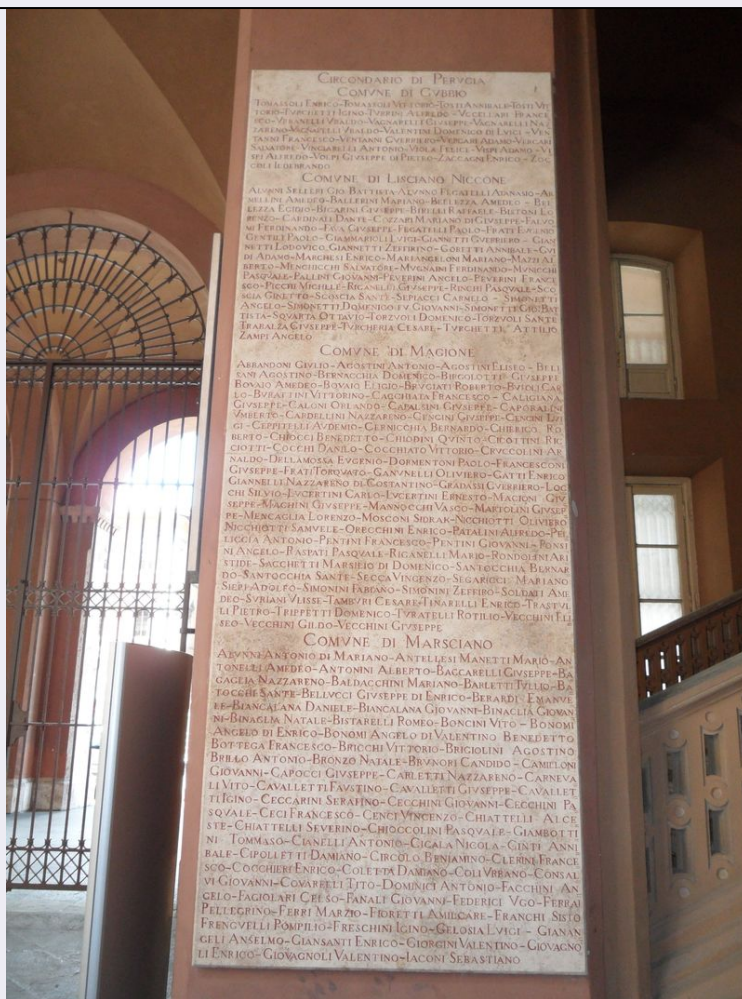 CIRCONDARIO DI PERVGIA
COMVNE DI GVBBIO
TOMASSOLI ENRICO-TOMASSOLI VITTORIO-TOSTI ANNIBALE-TOSTI VIT
TORIO-TVRCHETTI IGINO-TVRRINI ALFREDO-VCCELLARI FRANCE
SCO-VRBANELLI VBALDO-VAGNARELLI GIVSEPPE-VAGNARELLI NA
ZARENO-VAGNARELLI VBALDO-VALENTINI DOMENICO DI LVIGI-VEN
TANNI FRANCESCO-VENTANNI GVERRIERO-VERGARI ADAMO-VERGARI
SALVATORE-VINCIARELLI ANTONIO-VIOLA FELICE-VISPI ADAMO-VI
SPI ALFREDO-VOLPI GIVSEPPE DI PIETRO-ZACCAGNI ENRICO-ZOC
ILDEBRANDO
COMVNE DI LISCIANO NICCONE
ALVNNI SELLERI GIO BATTISTA-ALVNNO FEGATELLI ADANAMO-AR
NELLINI AMEDEO-BALLERINI MARIANO-BELLEZZA AMEDEO-BEL
LEZZA EGIDIO-BIGARINI GIVSEPPE-BIRELLI RAFFAELE-BISTONI LO
RENZO-CARDINALI DANTE-COZZARI MARIANO DI GIVSEPPE-FALVO
MI FERDINANDO-GIVSEPPE-FEGATELLI PAOLO-FRATI EVGENIO
GENTILI PAOLO-GIAMMARIOLI LVIGI-GIANNETTI GVERRIERO-GIAN
NETTI LODOVICO, GIANNETTI ZEFFIRINO-GORETTI ANNIBALE-GVI
DI ADAMO-MARCHESI ENRICO-MARIANGELONI MARIANO-MAZZI AL
BERTO-MENGHICCHI SALVATORE-MVGNAINI FERDINANDO-MVNICCHI
PASQVALE-PALLINI GIOVANNI-PEVERINI ANGELO-PEVERINI FRANCE
SCO-PICCHI MICHELE-RICANELLI GIVSEPPE-RINCHI PASQVALE-SCO
SCIA GINETTO-SCOSCIA SANTE-SEPIACCI CARMILLO-SIMONETTI
ANGELO-SIMONETTI DOMENICO FV GIOVANNI-SIMONETTI GIO BAT
TISTA-SQVARTA OTTAVIO-TORZVOLI DOMENICO-TORZVOLI SANTE
TRABALZA GIVSEPPE-TVRCHERIA CESARE-TVRGHETTI ATTILIO
ZAMPI ANGELO
COMVNE DI MAGIONE
ABBANDONI GIVLIO-AGOSTINI ANTONIO-AGOSTINI ELISEO-BELI
SANI AGOSTINO-BERNACCHIA DOMENICO-BIRGOLOTTI GIVSEPPE
BOVAIO AMEDEO-BOVAIO ELIGIO-BRVGIATI ROBERTO-BVICI CAR
LO-BVRATTINI VITTORINO-CACCHIATA FRANCESCO-CALIGIANA
GIVSEPPE-CALONI ORLANDO-CATALBINI GIVSEPPE-CAPORALINI
VMBERTO-CARDELLINI NAZZARENO-CENCINI GIVSEPPE-CENCINI LVI
GI-CEPPITELLI AVDEMIO-CERNICCHIA BERNARDO-CHIERICO RO
BERTO-CHIOCCI BENEDETTO-CHIODINI QVINTO-CICOTTINI RIC
CIOTTI-COCCHI DANILO-COCCHIATO VITTORIO-CRVCCOLINI AR
NALDO-DELLAMOSSA EVGENIO-DORMENTONI PAOLO-FRANCESCONI
GIVSEPPE-FRATI TORQVATO-GANVNELLI OLIVIERO-GATTI ENRICO
GIANNELLI NAZZARENO DI COSTANTINO-GRADASSI GVERRIERO-LOC
CHI SILVIO-LVCERTINI CARLO-LVCERTINI ERNESTO-MACIONI GIV
SEPPE-MAGHINI GIVSEPPE-MANNOCCHI VASCO-MARIOLINI GIVSEP
PE-MENCAGLIA LORENZO-MOSCONI SIDRAK-NICCHIOTTI OLIVIERO
NICCHIOTTI SAMVELE-ORECCHINI ENRICO-PATALINI ALFREDO-PEL
LICCIA ANTONIO-PENTINI FRANCESCO-PENTINI GIOVANNI-PONSI
NI ANGELO-RASPATI PASQVALE-RIGANELLI MARIO-RONDOLINI ARI
STIDE-SACCHETTI MARSILIO DI DOMENICO-SANTOCCHIA BERNAR
DO-SANTOCCHIA SANTE-SECCA VINCENZO-SEGARICCI MARIANO
SIEPI ADOLFO-SIMONINI FABIANO-SIMONINI ZEFFIRO-SOLDATI AME
DEO-SVRIANI VLISSE-TAMBVRI CESARE-TINARELLI ENRICO-TRASTVL
LI PIETRO-TRIPPETTI DOMENICO-TVRATELLI ROTILIO-VECCHINI ELI
SEO-VECCHINI GILDO-VECCHINI GIVSEPPE
COMVNE DI MARSCIANO
ALVNNI ANTONIO DI MARIANO-ANTELLESI MANETTI MARIO-AN
TONELLI AMEDEO-ANTONINI ALBERTO-BACCARELLI GIVSEPPE-BA
GAGLIA NAZZARENO-BALDACCHINI MARIANO-BARLETTI TVLLIO-BA
TOCCHI SANTE-BELLVCCI GIVSEPPE DI ENRICO-BERARDI EMANVE
LE-BIANCALANA DANIELE-BIANCALANA GIOVANNI-BINAGLIA GIOVAN
NI-BINAGLIA NATALE-BISTARELLI ROMEO-BONCINI VITO-BONOMI
ANGELO DI ENRICO-BONOMI ANGELO DI VALENTINO BENEDETTO
BOTTEGA FRANCESCO-BRICCHI VITTORIO-BRIGIOLINI AGOSTINO
BRILLO ANTONIO-BRONZO NATALE-BRVNORI CANDIDO-CAMILLONI
GIOVANNI-CAPOCCI GIVSEPPE-CARLETTI NAZZARENO-CARNEVA
LI VITO-CAVALLETTI FAVSTINO-CAVALLETTI GIVSEPPE-CAVALLET
TI IGINO-CECCARINI SERAFINO-CECCHINI GIOVANNI-CECCHINI PA
SQVALE-CECI FRANCESCO-CENCI VINCENZO-CHIATTELLI ALCE
STE-CHIATTELLI SEVERINO-CHIOCCOLINI PASQVALE-GIAMBOTTI
NI TOMMASO-CIANELLI ANTONIO-CIGALA NICOLA-CINTI ANNI
BALE-CIPOLLETTI DAMIANO-CIRCOLO BENIAMINO-CLERINI FRANCE
SCO-COCCHIERI ENRICO-COLETTA DAMIANO-COLI VRBANO-CONSAL
VI GIOVANNI-COVARELLI TITO-DOMINICI ANTONIO-FACCHINI AN
GELO-FAGIOLARI CELSO-FANALI GIOVANNI-FEDERICI VGO-FERRAI
PELLEGRINO-FERRI MARZIO-FIORETTI AMILCARE-FRANCHI SISTO
FRENGVELLI POMPILIO-FRESCHINI IGINO-GELOSIA LVIGI-GIANAN
GELI ANSELMO-GIANSANTI ENRICO-GIORGINI VALENTINO-GIOVAGNO
LI ENRICO-GIOVAGNOLI VALENTINO-IACONI SEBASTIANO